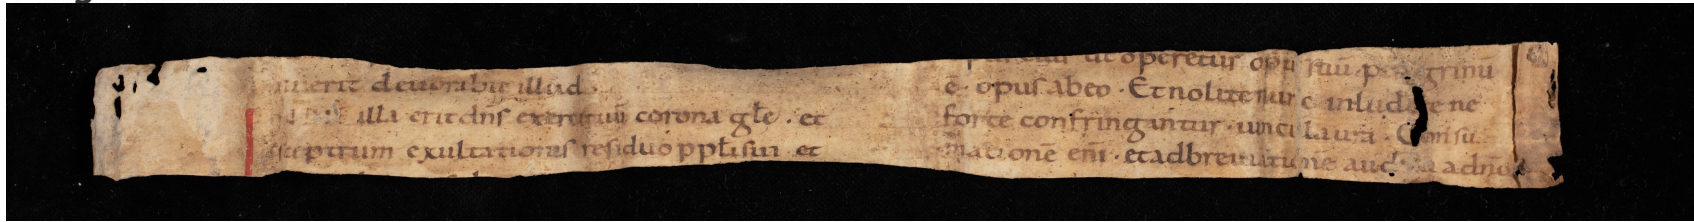 devorabit illud
illa erit dn̄s exercituū corona gl̄e · et
sceptrum exultationis residuo ppl̄i sui · et
ut operetur opus suū peregrinū
ē opus ab eo · Et nolite inludere ne
forte confringantur · uincula ura · Consu
mationē eni · et adbreuiationē audiui a dn̄o